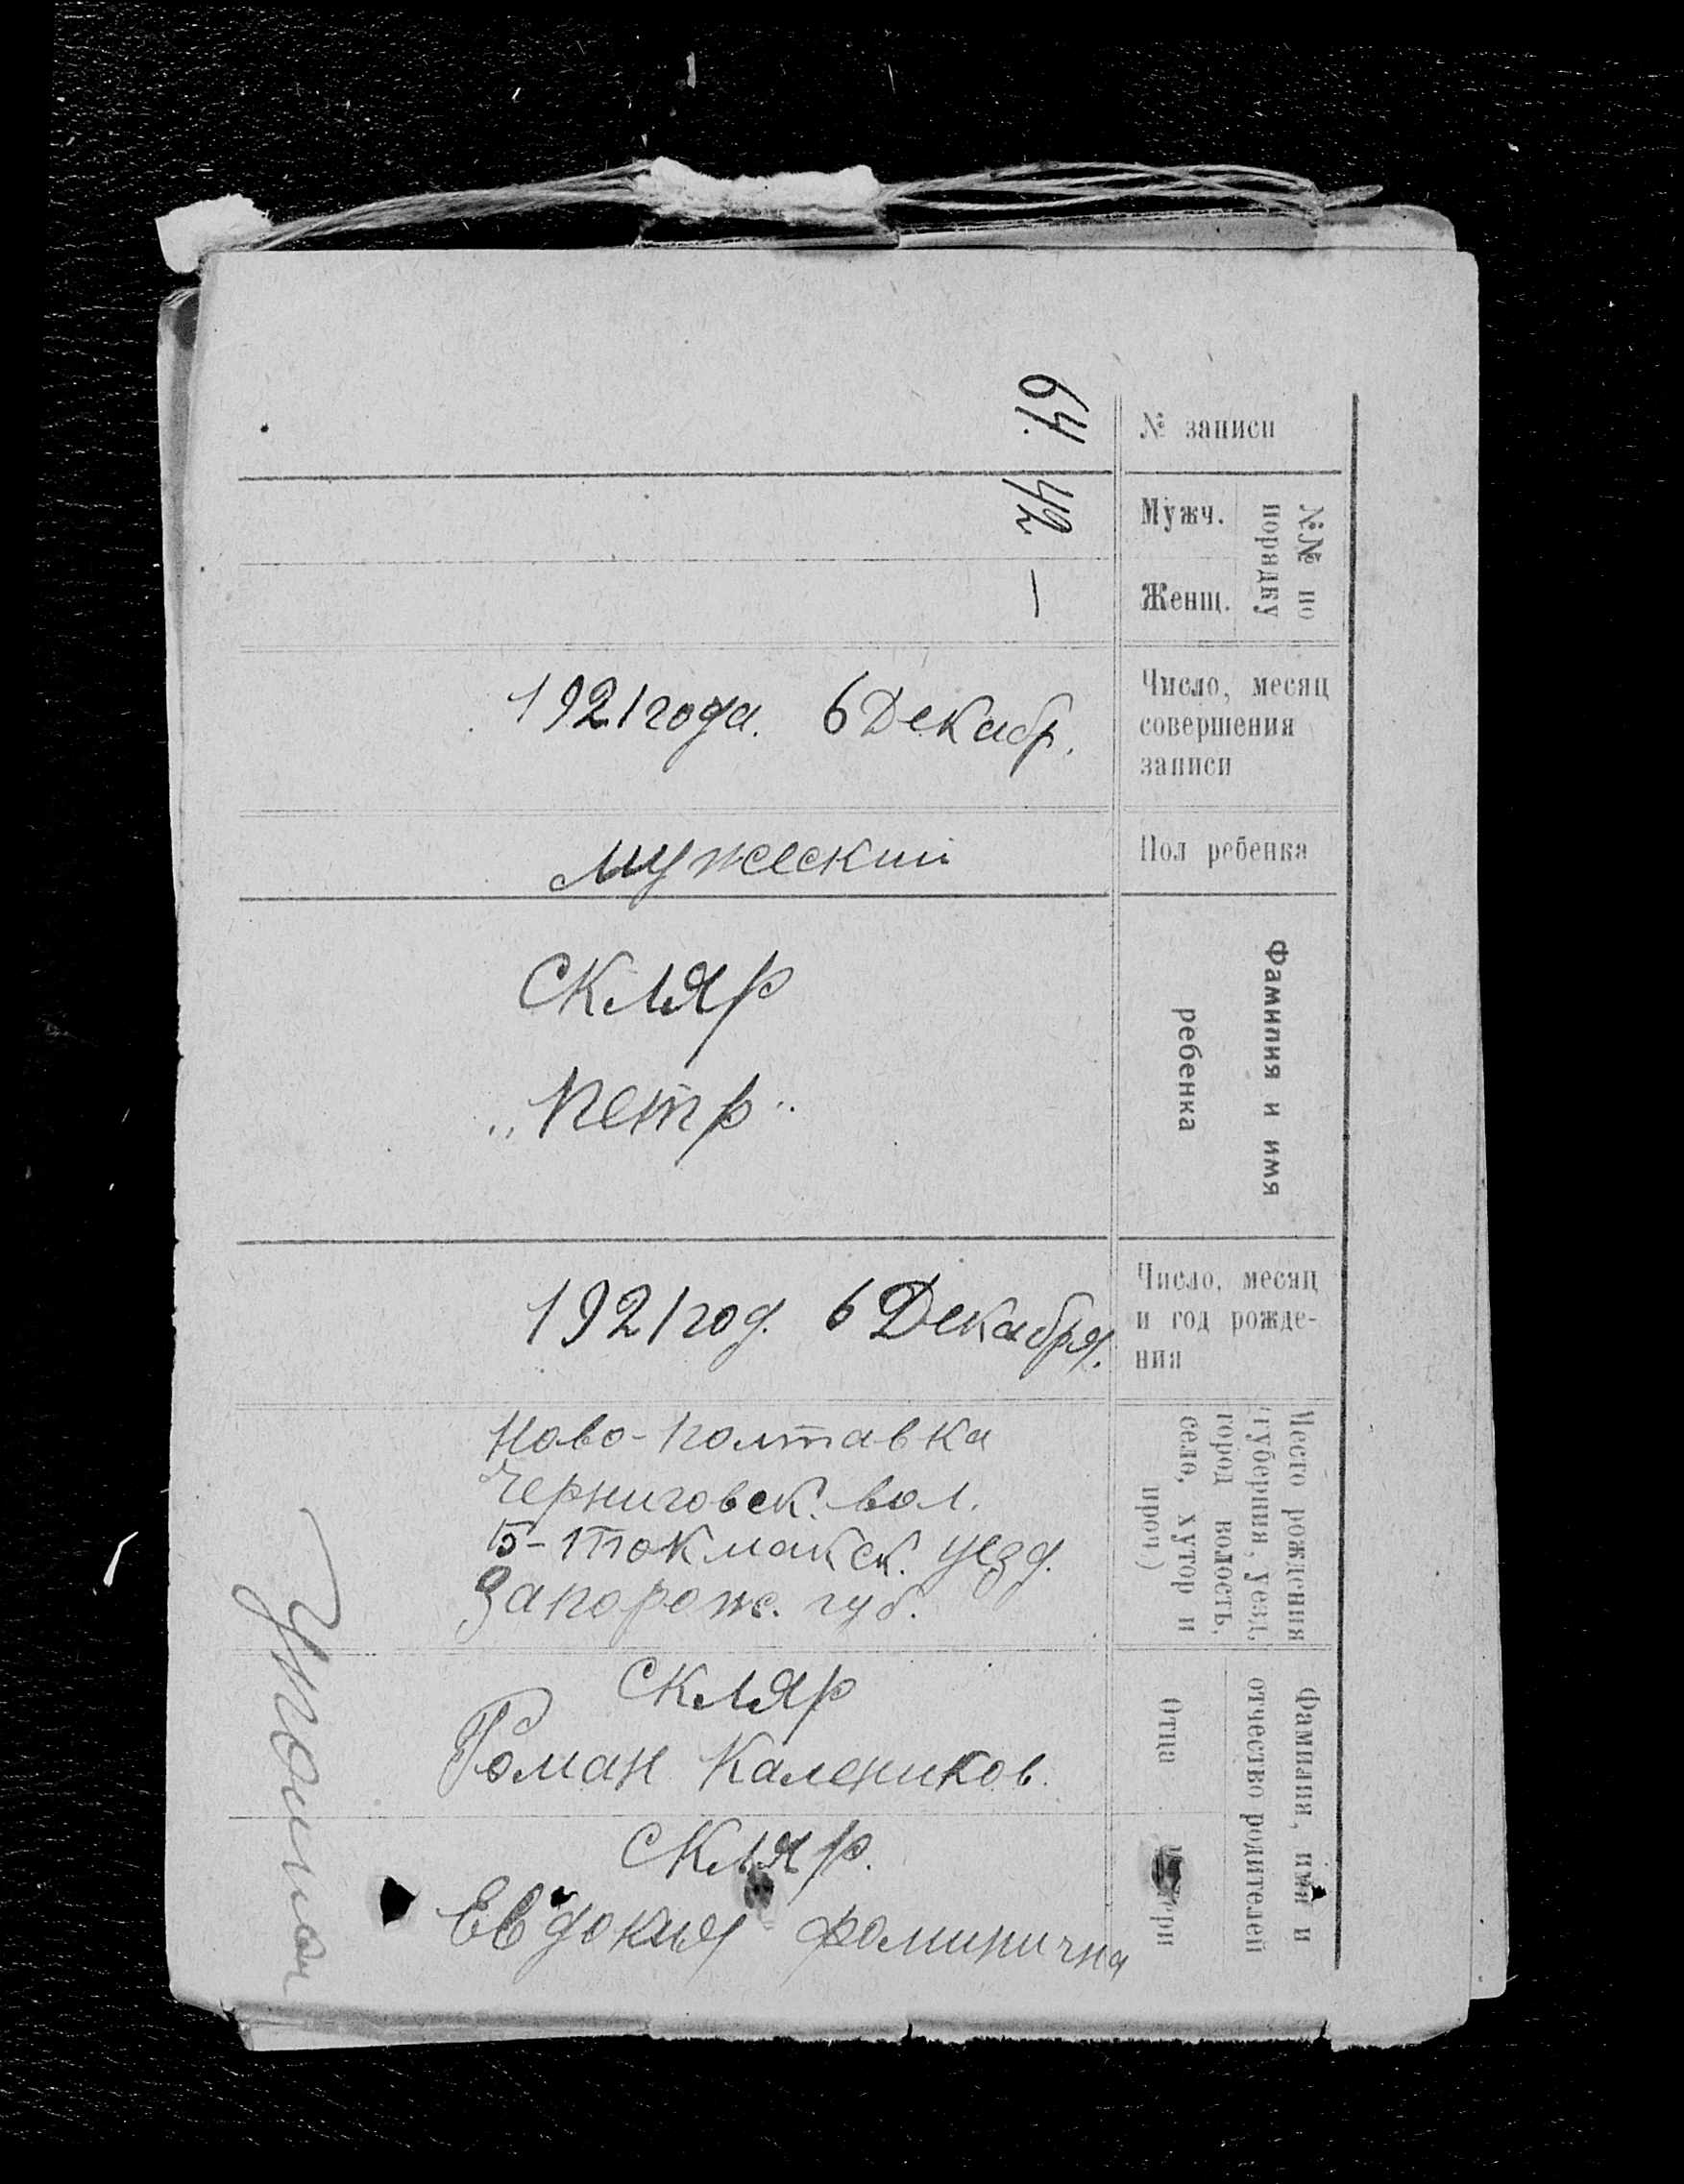 № записи
64.
№№ по
порядку
Мужч.
42
Женщ.
—
Число, месяц
совершения
записи
1921 года. 6 Декабр.
Пол ребенка
мужеский
Фамилия и имя
ребенка
Скляр
„Петр"
Число, месяц
и год рожде-
ния
1921 год. 6 Декабря.
Место рождения
(губерния, уезд,
город волость,
село, хутор и
проч.)
Ново-Полтавка
Черниговск. вол.
Б-Токмакск. уезд.
Запорож. губ.
Фамилия, имя и
отчество родителей
Отца
Скляр
Роман Калеников.
Матери
Скляр.
Евдокия Фоминична